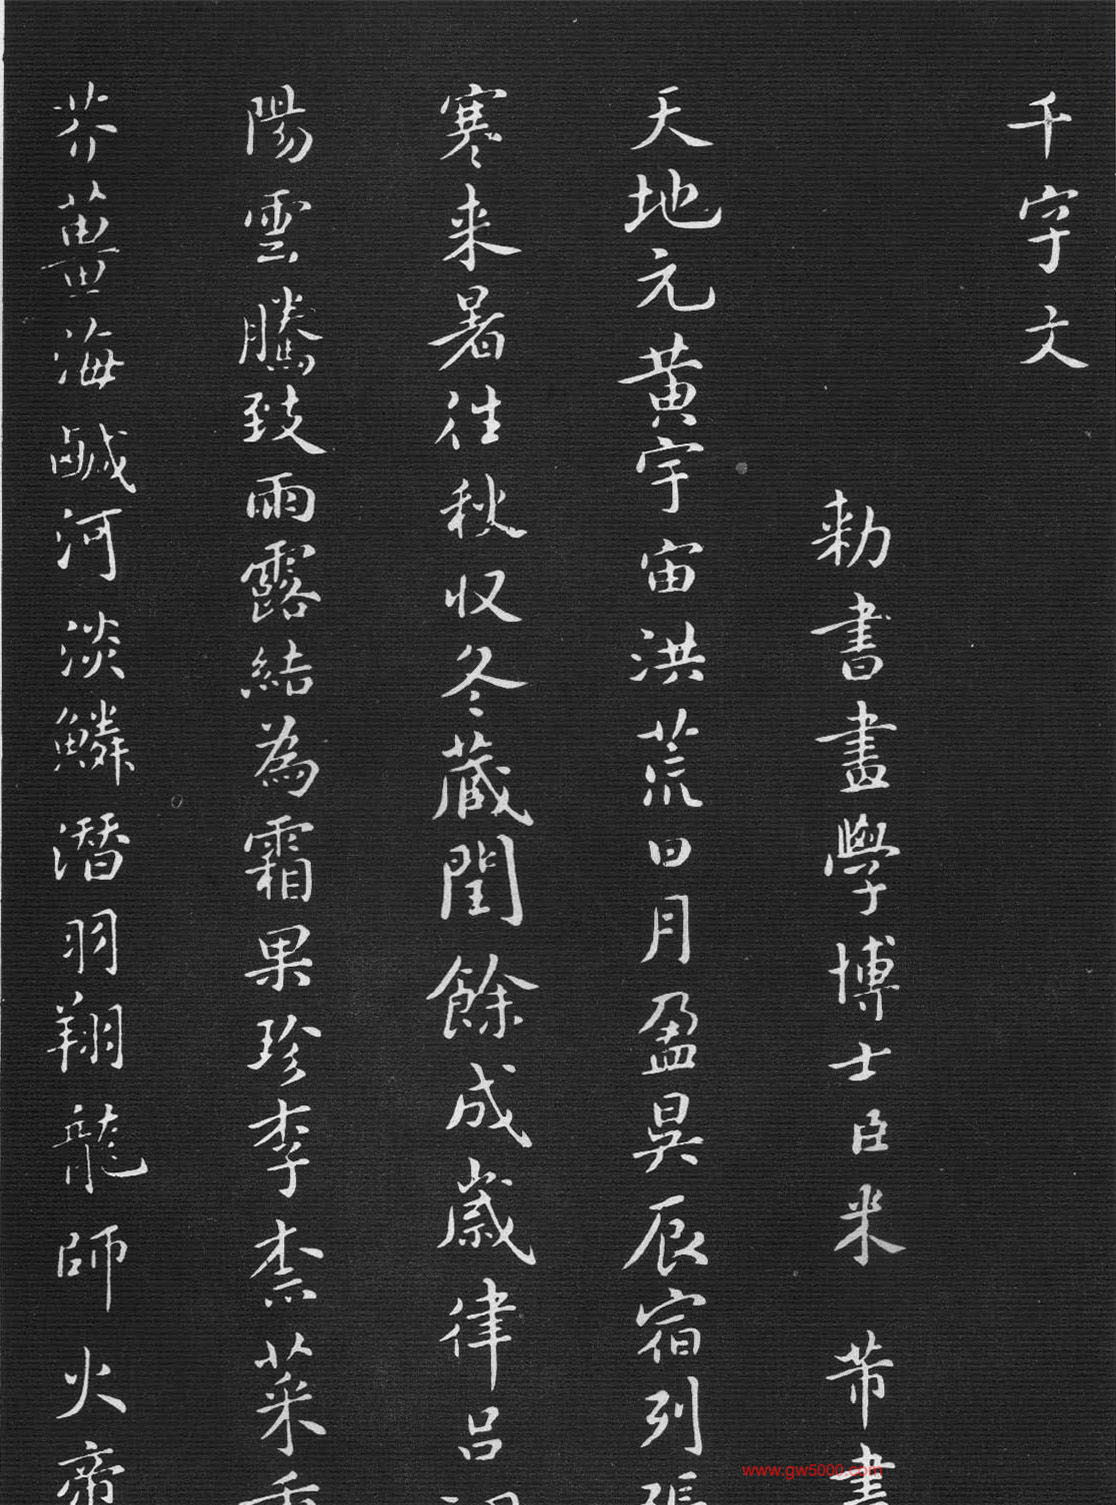 千字文
勅書畫學博士臣米芾書
天地元黄宇宙洪荒日月盈昃辰宿列張
寒来暑往秋収冬藏閏餘成嵗律吕
陽雲騰致雨露結為霜果珍李柰菜重
芥薑海鹹河淡鱗潛羽翔龍師火帝
www.gw5000.com